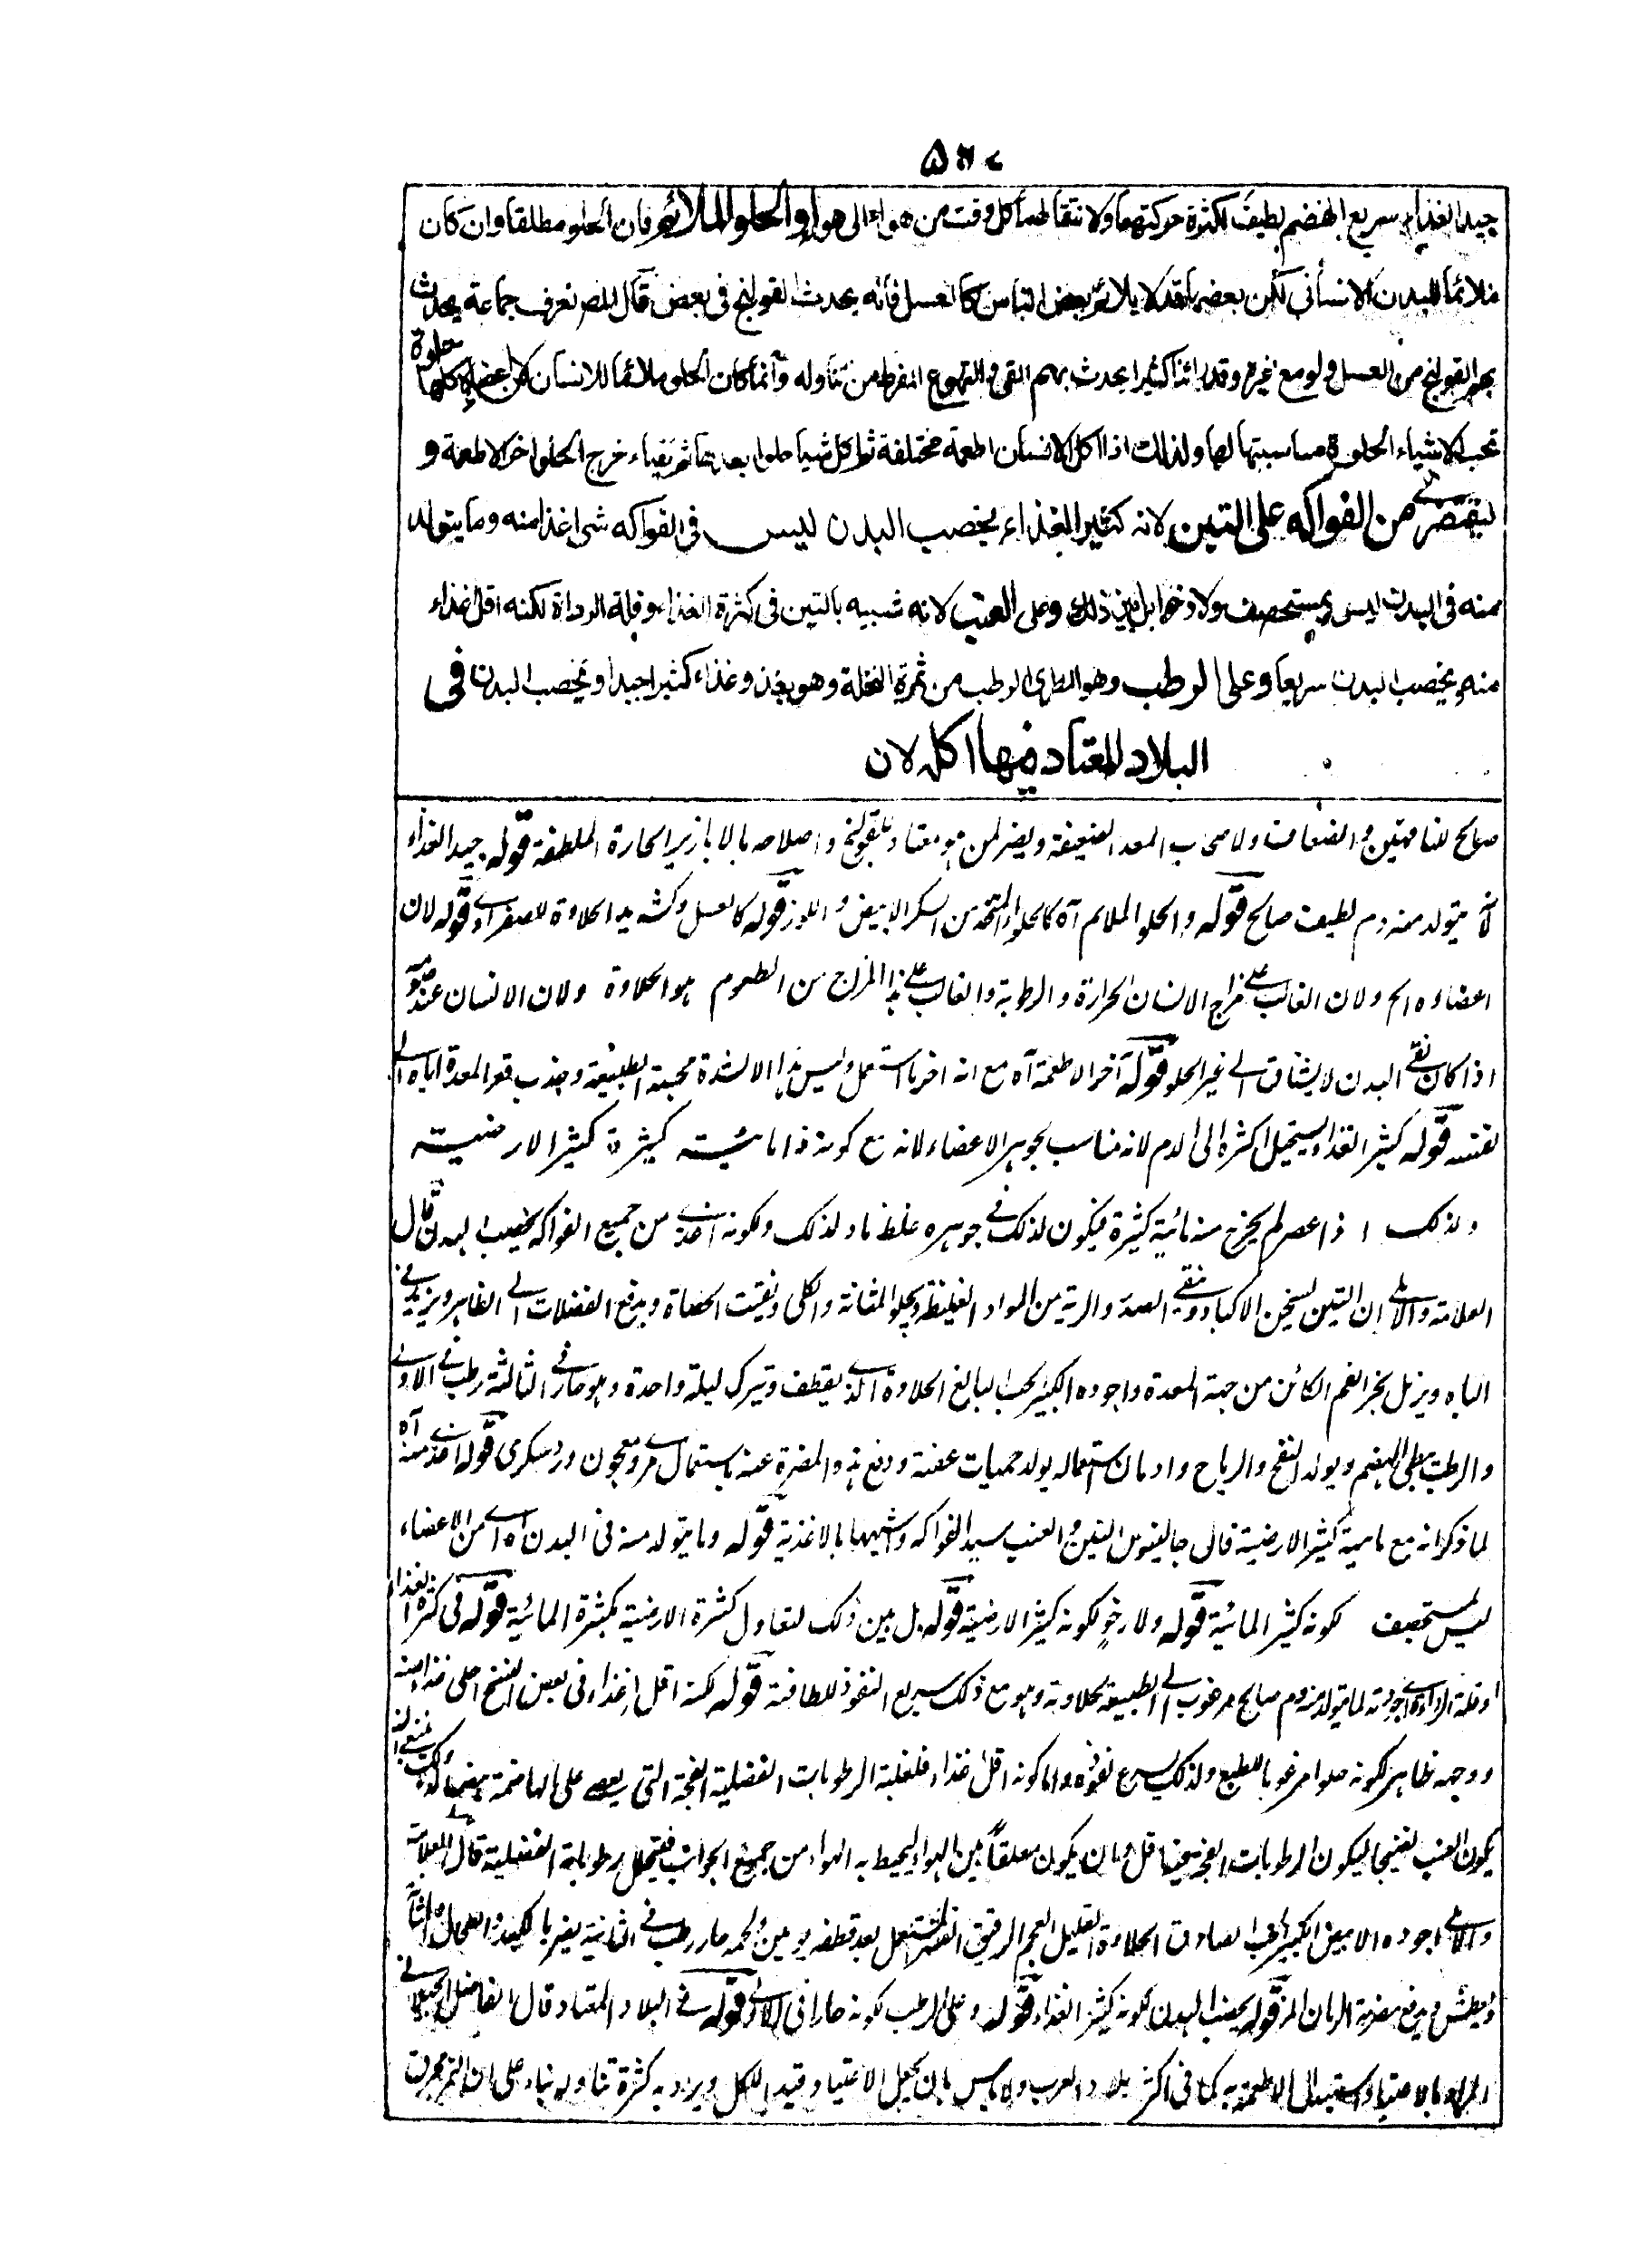 جيد الغذاء سريع الهضم لطيف لكثرة حركتهما ولا نتقالهما كل وقت من هواء الى هواء والحلو الملائم فان الحلو مطلقا وان كان
ملائما للبدن الانسانى لكن بعضها قد لا يلائم بعض الناس كالعسل فانه يحدث القولنج فى بعض قال المصر نعرف جماعة يحدث
بهم القولنج من العسل ولو مع غيره وقد رأتنا كثيرا يحدث بهم القى والتهوع المفرط من تناوله وانما كان الحلو ملائما للانسان لان اعضاءه كلها حلوة
تحب الاشياء الحلوة مناسبتها لها ولذلك اذا اكل الانسان اطعمة مختلفة ثم اكل شيا حلوا بعدها ثم تقياء خرج الحلو اخر الاطعمة و
ليقتصر من الفواكه على التين لانه كثير الغذاء يخصب البدن ليس فى الفواكه شى اغذا منه وما يتولد
منه فى البدن ليس بمستحصف ولا رخو ابل بين ذلك وعلى العنب لانه شبيه بالتين فى كثرة الغذاء وقلة الرداة لكنه اقل غذاء
منه ويخصب البدن سريعا وعلى الرطب وهو الطرى الرطب من ثمرة النخلة وهو يغذو غذاء كثيرا جيدا ويخصب البدن فى
البلاد المعتاد فيها اكله لان
صالح للناقهين والضعاف ولا صحاب المعد الضعيفة ويضر لمن هو معتاد بالقولنج واصلاحه بالابازير الحارة الملطفة قوله جيد الغذاء
لانه يتولد منه دم لطيف صالح قوله والحلو الملائم آه كالحلو المتخذ من السكر الابيض واللوز قوله كالعسل وكشديد الحلاوة للصفراوى قوله لان
اعضاءه الخ ولان الغالب على مزاج الانسان الحرارة والرطوبة والغالب على هذا المزاج من الطعوم هو الحلاوة ولان الانسان عند
اذا كان نقى البدن لا يشتاق الى غير الحلو قوله آخر الاطعمة آه مع انه اخر ما استعمل وليس هذا الا لشدة محبة الطبيعة وجذب قعر المعدة اياه الى
نفسه قوله كثير الغذاء ويستحيل اكثره الى الدم لانه مناسب لجوهر الاعضاء لانه مع كونه ذا مائية كثيرة كثير الارضية
ولذلك اذا عصر لم يخرج منه مائية كثيرة فيكون لذلك فى جوهره غلظ ما ولذلك ولكونه اغذى من جميع الفواكه يخصب البدن قال
العلامة والآملى ان التين يسخن الاكباد وينقى الصدر والرية من المواد الغليظة ويجلو المثانة والكلى ويفتت الحصاة ويدفع الفضلات الى الظاهر ويزيد فى
الباه ويزيل بخر الفم الكائن من جهة المعدة واجوده الكبير الحب البالغ الحلاوة الذى يقطف ويترك ليلة واحدة وهو حار فى الثالثة رطب فى الاولى
والرطب بطى الهضم ويولد النفخ والرياح وادمان استعماله يولد حميات عفنة ودفع هذه المضرة عنه باستعمال مرى معجون ورد سكرى قوله اغذى منه آه
لما ذكر انه مع مائية كثير الارضية قال جالينوس التين والعنب سيد الفواكه واشبهها بالاغذية قوله وما يتولد منه فى البدن آه اى من الاعضاء
ليس بمستحصف لكونه كثير المائية قوله ولا رخو لكونه كثير الارضية قوله بل بين ذلك لتعادل كثرة الارضية بكثرة المائية قوله فى كثرة الغذاء
وقلة الرداءة اى جودته لما يتولد منه دم صالح مرغوب الى الطبيعة لحلاوته وهو مع ذلك سريع النفوذ للطافته قوله لكنه اقل غذاء فى بعض النسخ اعلى غذاء منه
ووجهه ظاهر لكونه حلوا مرغوبا للطبع ولذلك يسرع نفوذه واما كونه اقل غذاء فلغلبة الرطوبات الفضلية الفجة التى يعصى على الهاضمة هضمها
يكون العنب نضيجا ليكون الرطوبات الفجة فيها اقل وبان يكون معلقا بين الهواء ليحيط به الهواء من جميع الجوانب فيتحلل رطوباته الفضلية قال العلامة
والآملى اجوده الابيض الكبير الحب الصادق الحلاوة القليل العجم الرقيق القشر المستعمل بعد قطفه بيومين ولحمه حار رطب فى الثانية يضر بالكبد والطحال والمثانة
ويعطش ويدفع مضرته الرمان المز قوله يخصب البدن لكونه كثير الغذاء قوله وعلى الرطب لكونه حارا فى الاولى قوله فى البلاد المعتاد قال الفاضل الجيلانى
المراد بالاعتياد استبدال الاطعمة به كما فى اكثر بلاد العرب ولا باس بان يجعل الاعتياد قيدا للكل ويراد به كثرة تناوله بناء على ان التمر محرق